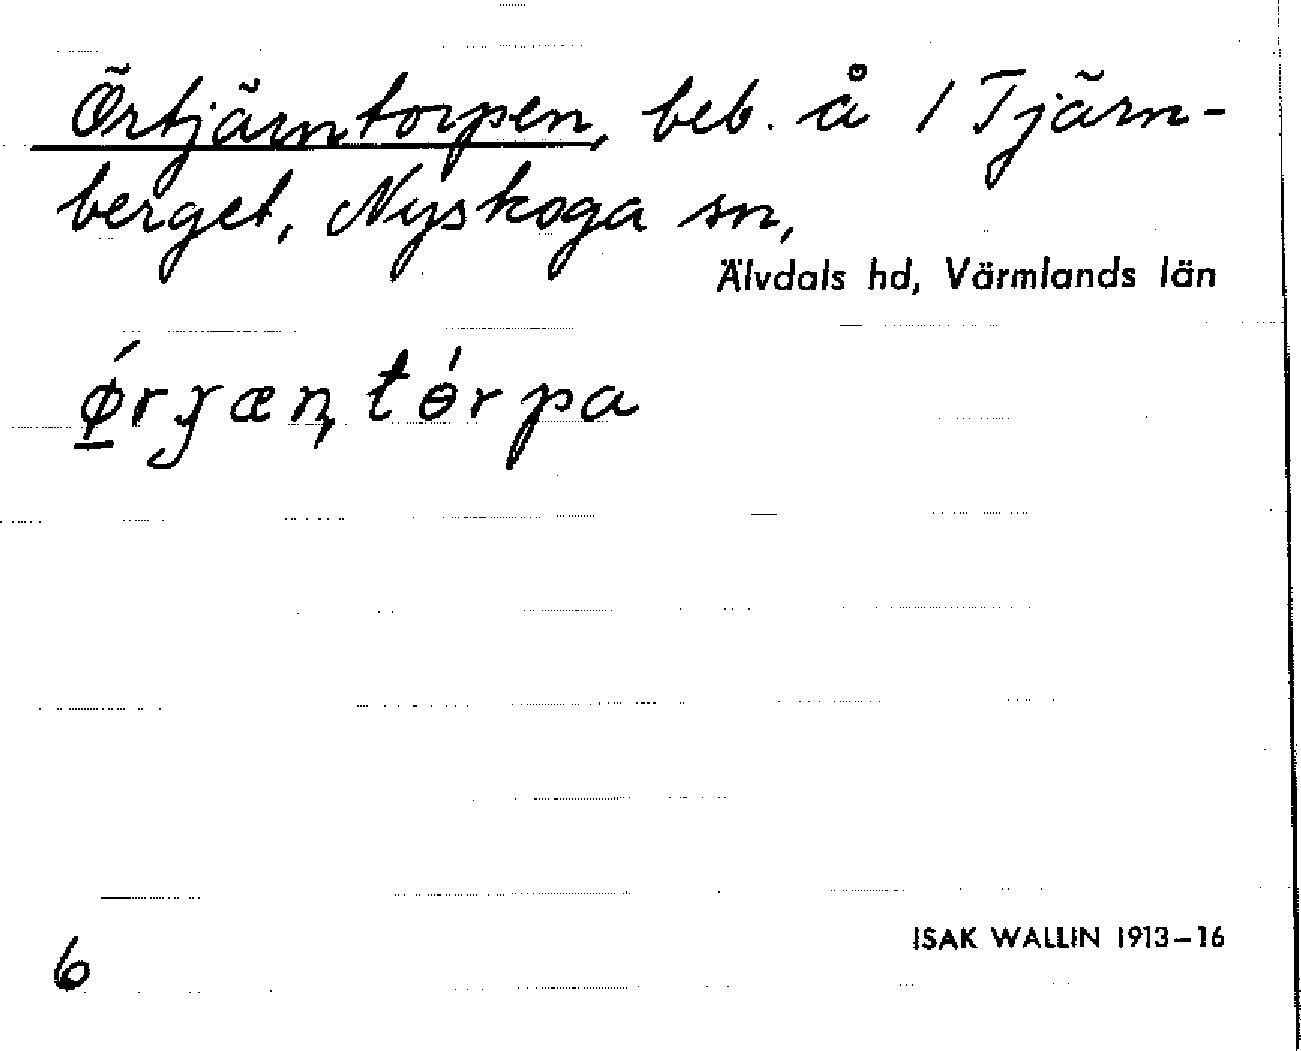 Örtjärntorpen, beb. å 1 Tjärn-
berget, Nyskoga sn,
Älvdals hd, Värmlands län
ǿrɟæn̦tɵ́rpa
6
ISAK WALLIN 1913–16